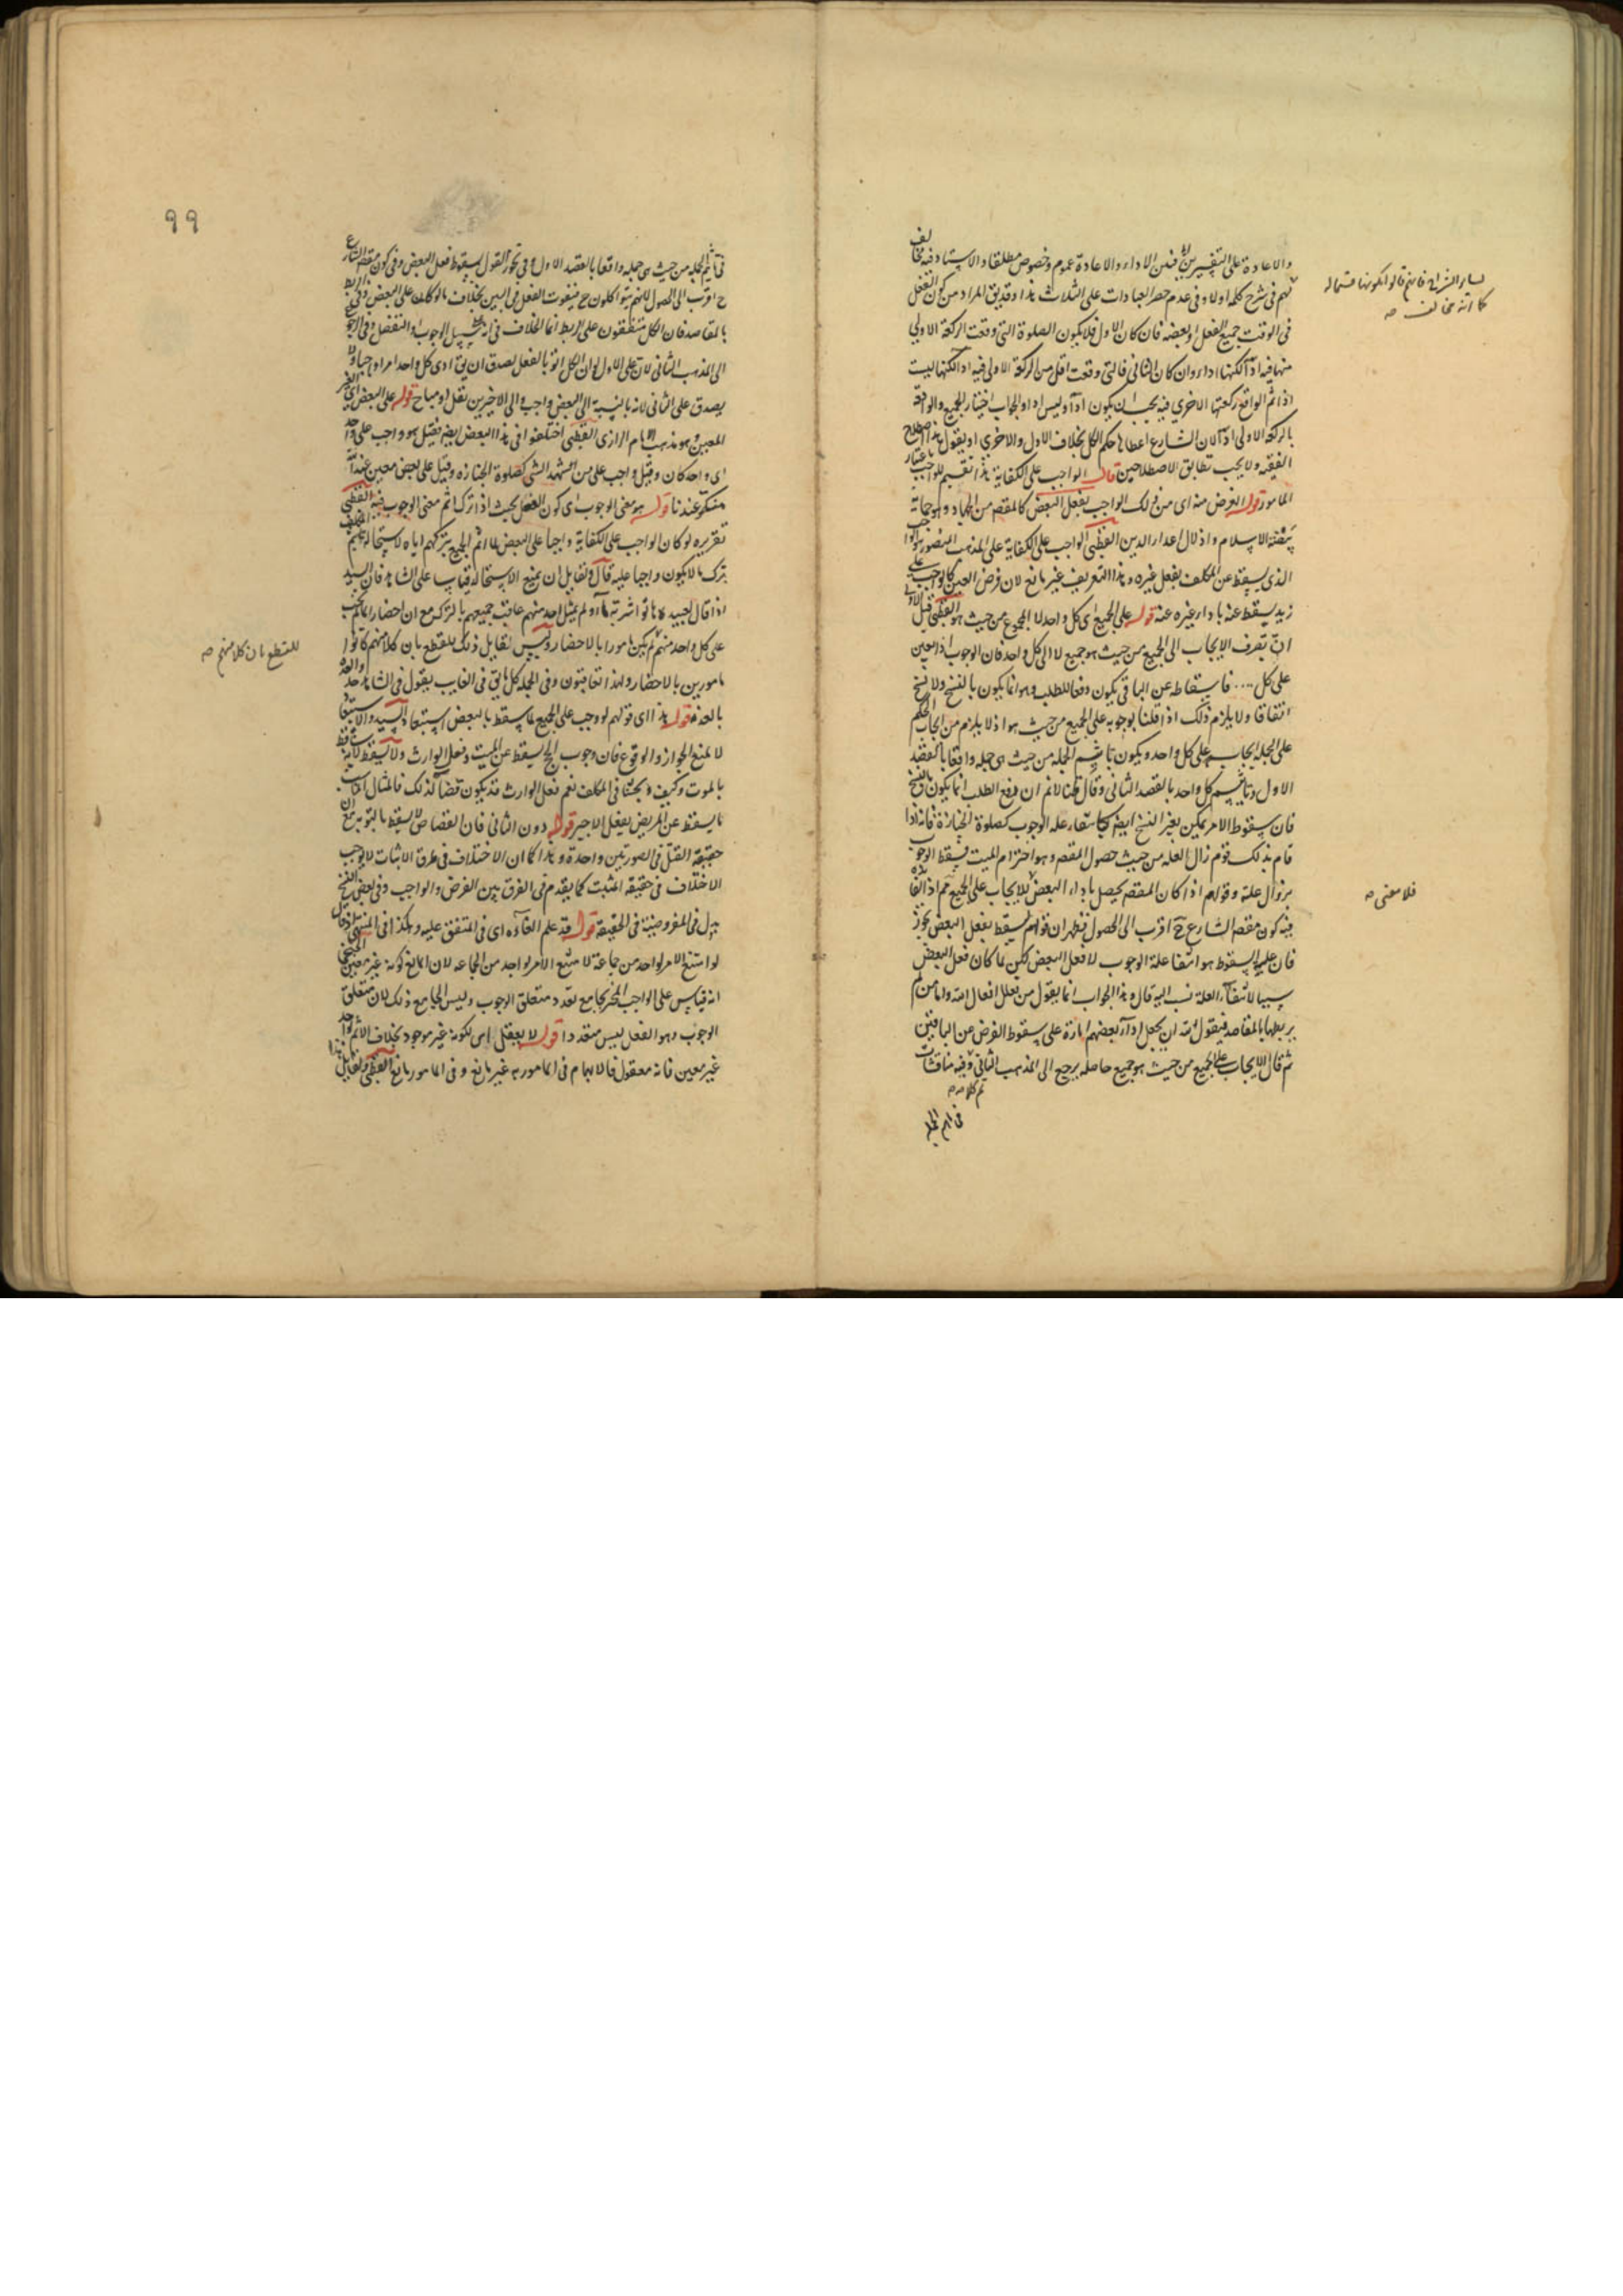 والاعادة على التفسيرين فبين الاداء والاعادة عموم وخصوص مطلقا والاستاد فيه مخالف
لهم في شرح كلمة اولا وفي عدم حصر العبادات على الثلاث هذا وقد يق المراد من كون الفعل
في الوقت جميع الفعل او بعضه فان كان الاول فلا يكون الصلوة التى وقعت الركعة الاولى
منها فيه اداء لكنها اداء وان كان الثانى فالتى وقعت اقل من الركعة الاولى فيه اداء لكنها ليست
اذا ثم الواقع ركعتها الاخرى فيه يجب ان يكون اداء وليس اداء والجواب اختيار الجميع والواقعة
بالركعة الاولى اداء لان الشارع اعطاها حكم الكل بخلاف الاول والاخرى او يقول هذا اصطلاح
الفقيه ولا يجب تطابق الاصطلاحين قال الواجب على الكفاية هذا تقسيم للواجب باعتبار
المامور قوله الغرض منه اى من ذلك الواجب بفعل البعض كالمقصد من الجهاد وهو حماية
بيضة الاسلام واذلال اعداء الدين القطبى الواجب على الكفاية على المذهب المنصور هو الواجب
الذى يسقط عن المكلف بفعل غيره وهذا التعريف غير مانع لان فرض العين كالواجب على
زيد يسقط عنه باداء غيره عنه قوله على الجميع اى كل واحد لا المجموع من حيث هو القطبى قيل الاولى
ان تصرف الايجاب الى الجميع من حيث هو جميع لا الى كل واحد فان الوجوب اذا تعين
على كل .... فاسقاطه عن الباقى يكون رفعا للطلب وهو انما يكون بالنسخ ولا نسخ
اتفاقا ولا يلزم ذلك اذا قلنا بوجوبه على الجميع من حيث هو اذ لا يلزم من ايجاب الحكم
على الجملة ايجابه على كل واحد ويكون تاثيم الجملة من حيث هى جملة واقعا بالقصد
الاول وتاثيم كل واحد بالقصد الثانى وقال قلنا لانم ان رفع الطلب انما يكون بالنسخ
فان سقوط الامر يمكن بغير النسخ ايضا كانتفاء علة الوجوب كصلوة الجنازة فانه اذا
قام بذلك قوم زال العلة من حيث حصول المقصد وهو احترام الميت فيسقط الوجوب
بزوال علته وقولهم اذا كان المقصد يحصل باداء البعض فلا يجاب على الجميع
فيه كون مقصد الشارع ح اقرب الى الحصول فظهر ان قولهم يسقط بفعل البعض تجوز
فان علة السقوط هو انتفا علة الوجوب لا فعل البعض لكن لما كان فعل البعض
سببا لانتفاء العلة نسب اليه قال وهذا الجواب انما يقول من يعلل افعال الله واما من لم
يربطها بالمقاصد فيقول لله ان يجعل اداء بعضهم امارة على سقوط الفرض عن الباقين
ثم قال الايجاب على الجميع من حيث هو جميع حاصله يرجع الى المذهب الثانى وفيه مناقشات
تم كلامه
كانه مخالف صه
فلا معنى صه
٩٩
فى تاثيم الجملة من حيث هى جملة واقعا بالقصد الاول وفى تجوز القول بسقوط فعل البعض وفى كون مقصد الشارع
ح اقرب الى الحصول لانهم يتواكلون ح فيفوت الفعل فى البين بخلاف ما لو كان على البعض وفى
بالمقاصد فان الكل متفقون على الربط انما الخلاف فى انه بسبيل الوجوب او التفضل وفى
الى المذهب الثانى لان على الاول لو ان الكل اتو بالفعل يصدق ان يق ادى كل واحد امرا واجبا ولا
يصدق على الثانى لانه بالنسبة الى البعض واجب والى الاخيرين نفل او مباح قوله على البعض اى الغير
المعين وهو مذهب الامام الرازى القطبى اختلفوا فى هذا البعض ايضا فقيل هو واجب على واحد
اى واحد كان وقيل واجب على من شهد الشى كصلوة الجنازة وقيل على بعض معين عند الله
منكر عندنا قوله هو معنى الوجوب اى كون الفعل بحيث اذا ترك اثم معنى الوجوب فيه القطبى
تقريره لو كان الواجب على الكفاية واجبا على البعض لما اثم الجميع بتركهم اياه لاستحالة تاثيم المكلف
بترك ما لا يكون واجبا عليه قال ولقايل ان يمنع الاستحالة قياسا على الشاهد فان السيد
اذا قال لعبيده هاتوا شربة ماء ولم يمثل احد منهم عاقب جميعهم بالترك مع ان احضار الماء لم يجب
على كل واحد منهم لم يكن مامورا بالاحضار وليس لقايل ذلك للقطع بان كلا منهم كانوا
مامورين بالاحضار ولهذا تعاقبون وفى الجملة كل ما يق فى الغايب يقول فى الشاهد
بالعذه قوله هذا اى قولهم لو وجب على الجميع لما سقط بالبعض استبعاد السيد والاستبعاد
لا يمنع الجواز والوقوع فان وجوب الحج يسقط عن الميت بفعل الوارث ولا يسقط لانه ساقط
بالموت وكيف وبحثنا فى المكلف نعم فعل الوارث قد يكون قضاء لذلك فالمثال المناسب
ما يسقط عن المريض بفعل الاجير قوله دون الثانى فان القصاص لا يسقط بالتوبه مع ان
حقيقة القتل فى الصورتين واحدة وهذا كان الاختلاف فى طرق الاثبات لا يوجب
الاختلاف فى حقيقة المثبت كما يقدم فى الفرق بين الفرض والواجب وفى بعض النسخ
بدل فى المفروضية فى الحقيقة قوله قد علم الغاءه اى فى المتفق عليه وهكذا فى المنتهى اذ قال
لو امتنع الامر لواحد من جماعة لامتنع الامر لواحد من الجماعه لان المانع كونه غير معين
انه قياس على الواجب المخير بجامع تعدد متعلق الوجوب وليس الجامع ذلك لان متعلق
الوجوب وهو الفعل ليس متعددا قوله لا يعقل اى لكونه غير موجود بخلاف الاثم بواحد
غير معين فانه معقول فالابهام فى المامور به غير مانع وفى المامور مانع القطبى ولقايل
للقطع بان كلا منهم صه